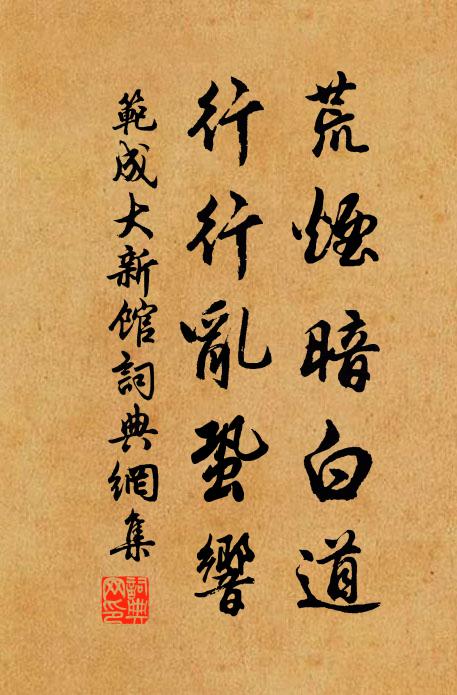 荒煙暗白道
行行亂蛩響
範成大新館詞典網集
詞典網印